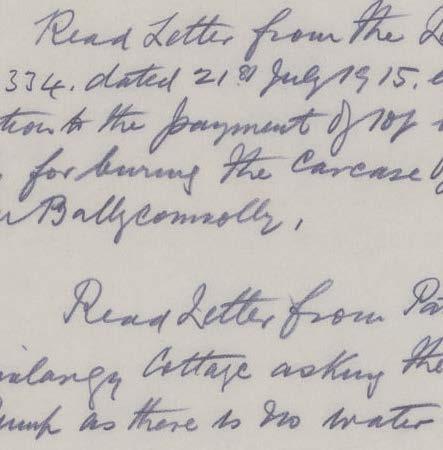 Read Letter from the
334. dated 21st July 1915.
tion to the payment of 10/
for buring the Carcase
Ballyconnolly.
Read Letter from
Cottage asking the
Pump as there is no water